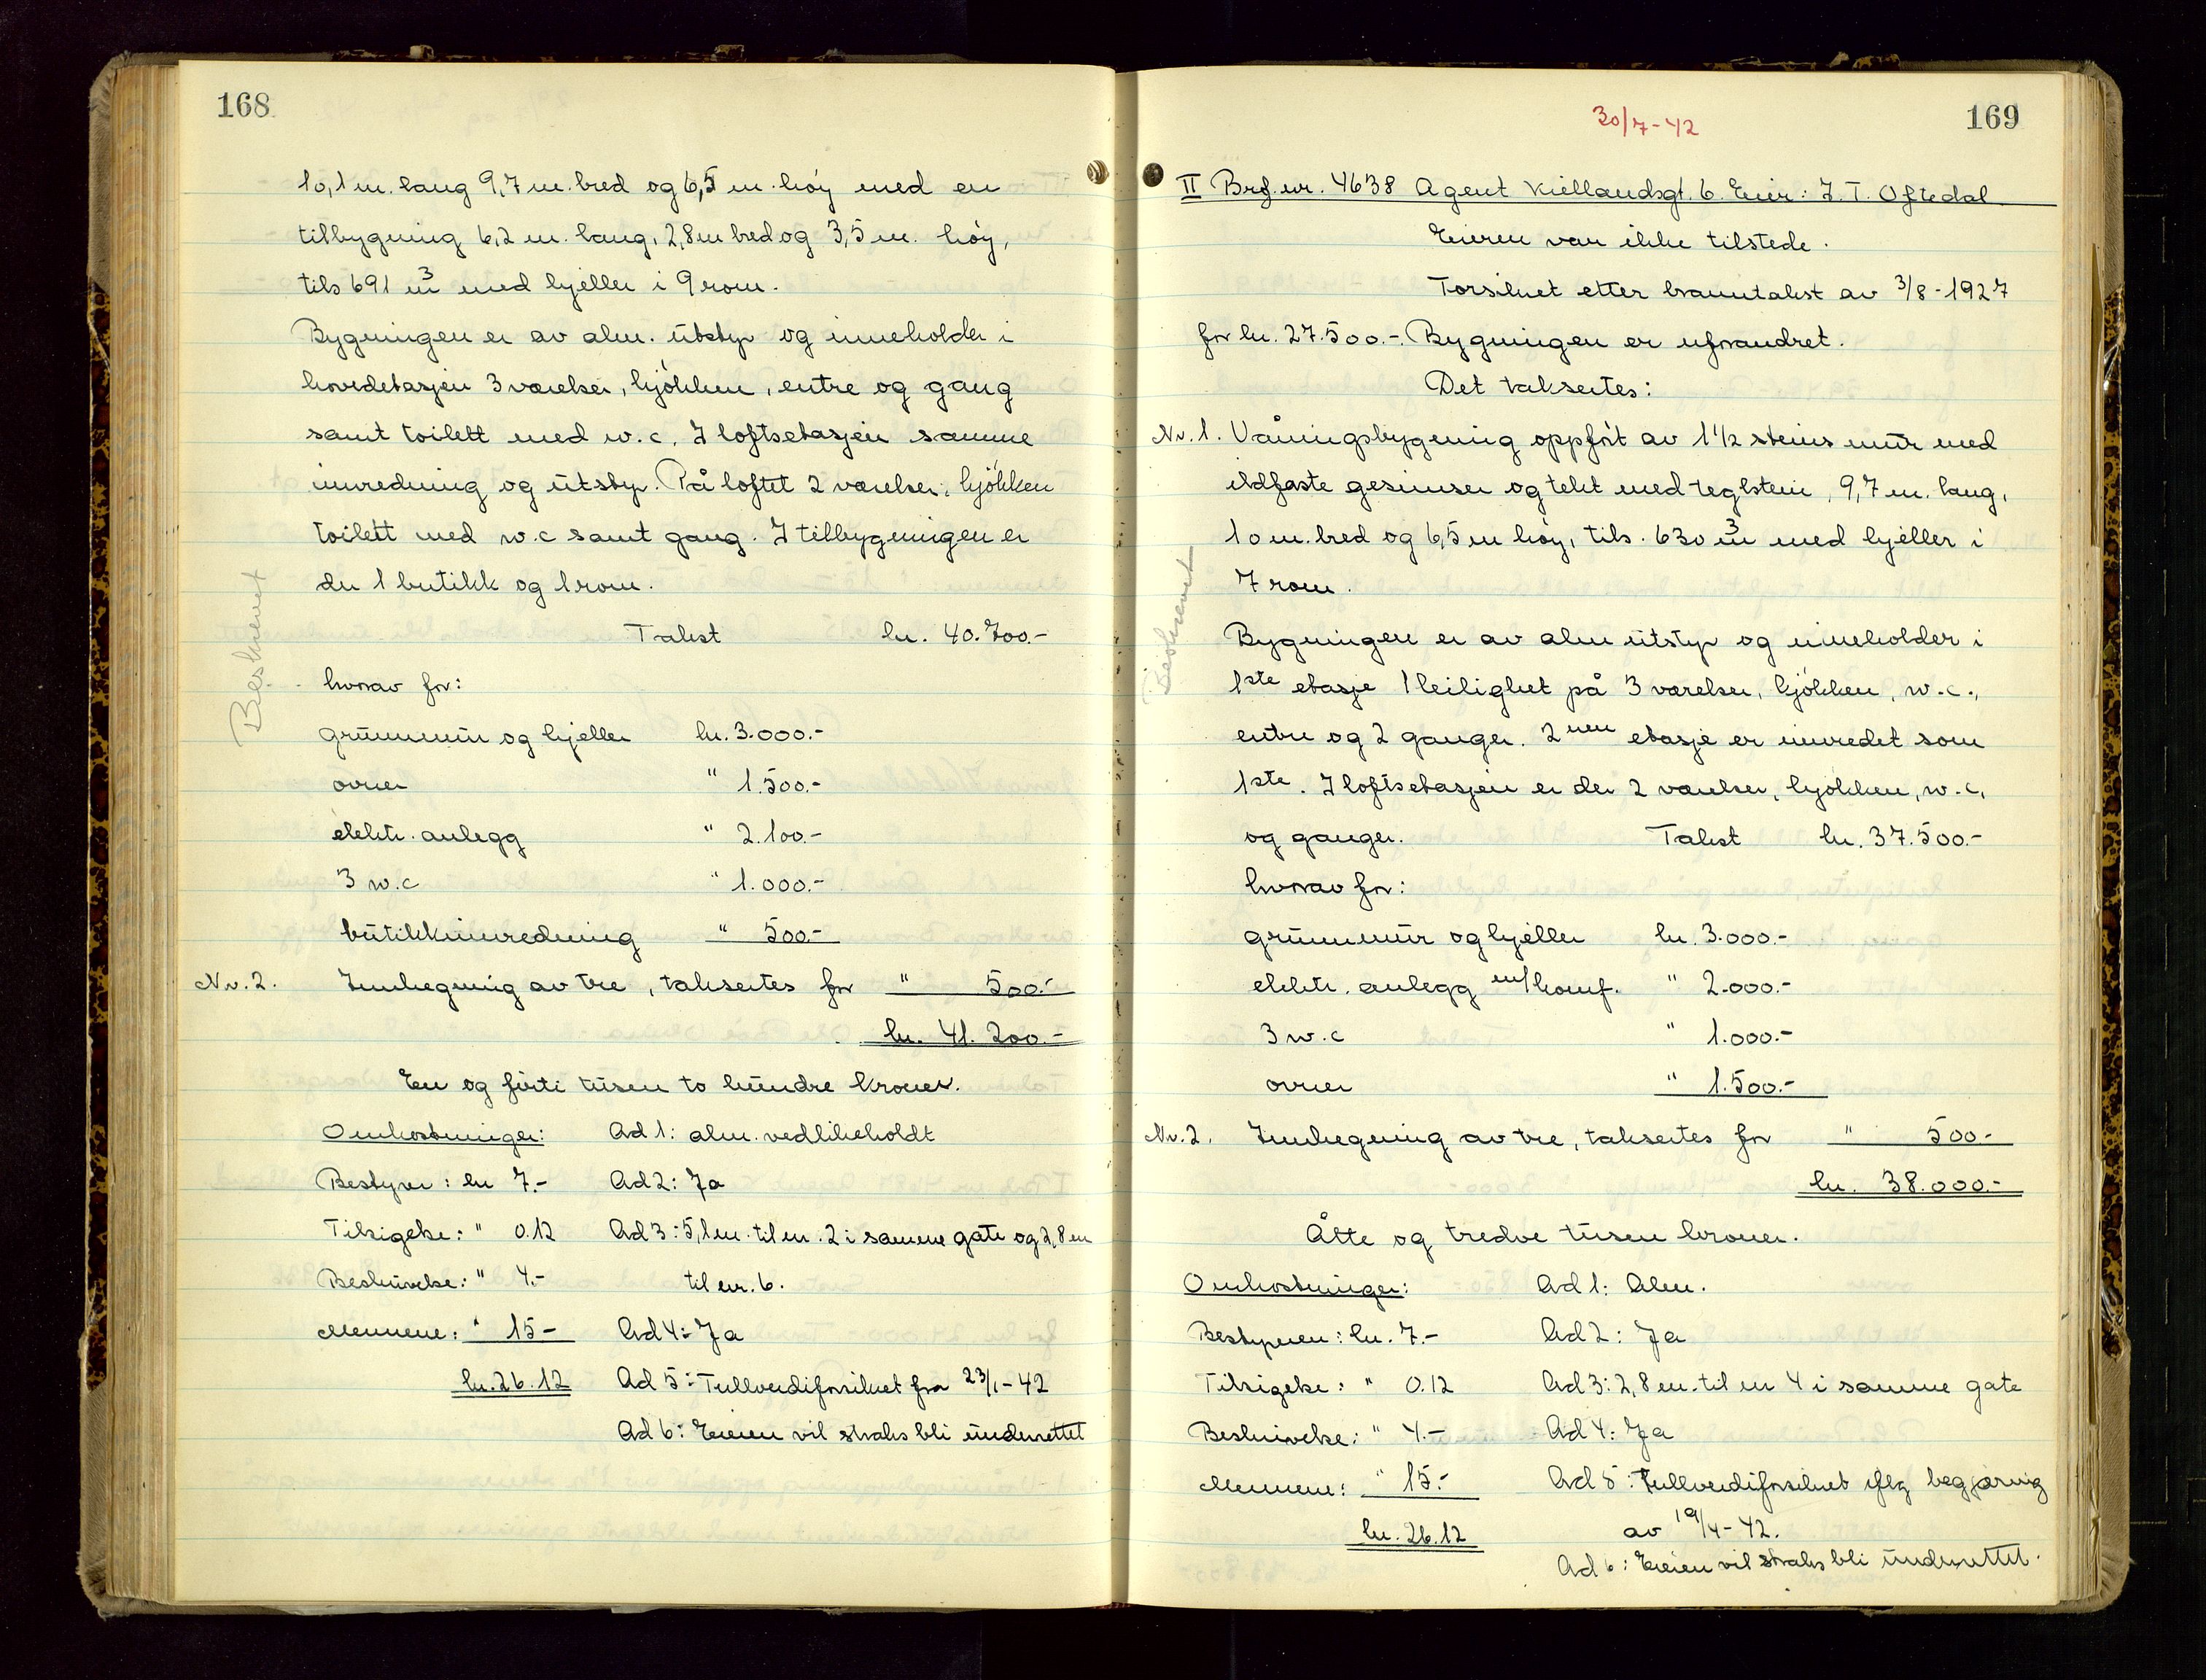 168
10,1 m. lang 9,7 m. bred og 6,5 m. høy med en
tilbygning 6,2 m. lang, 2,8 m bred og 3,5 m. høy,
tils 691 m³ med kjeller i 9 rom.
Bygningen er av alm. utstyr og inneholder i
hovedetasjen 3 værelser, kjøkken, entre og gang
samt toilett med w.c. I loftsetasjen samme
innredning og utstyr. På loftet 2 værelser, kjøkken
toilett med w.c samt gang. I tilbygningen er
der 1 butikk og 1 rom.
Takst kr. 40.700.-
Beskrevet
hvorav for:
grunnmur og kjeller kr. 3.000.-
ovner " 1.500.-
elektr. anlegg " 2.100.-
3 w.c " 1.000.-
butikkinnredning " 500.-
Nr. 2. Innhegning av tre, takseres for " 500.-
kr. 41.200.-
En og førti tusen to hundre kroner.
Omkostninger: Ad 1: alm. vedlikeholdt
Bestyrer: kr 7.- Ad 2: Ja
Tilsigelse: " 0.12 Ad 3: 5,1 m. til nr. 2 i samme gate og 2,8 m
Beskrivelse: " 4.- til nr. 6.
Mennene: " 15- Ad 4: Ja
kr. 26.12 Ad 5: Fullverdiforsikret fra 23/1-42
Ad 6: Eieren vil straks bli underrettet
30/7-42
169
II Brf. nr. 4638 Agent Kiellandsgt. 6. Eier: J. T. Oftedal
Eieren var ikke tilstede.
Forsikret etter branntakst av 3/8-1927
for kr. 27.500.-. Bygningen er uforandret.
Det takseres:
Nr. 1. Våningsbygning oppført av 1 1/2 steins mur med
ildfaste gesimser og tekt med teglstein, 9,7 m. lang,
10 m. bred og 6,5 m høy, tils. 630 m³ med kjeller i
7 rom.
Beskrevet
Bygningen er av alm utstyr og inneholder i
1ste etasje 1 leilighet på 3 værelser, kjøkken, w.c.,
entre og 2 ganger. 2nen etasje er innredet som
1ste. I loftsetasjen er der 2 værelser, kjøkken, w.c,
og ganger. Takst kr. 37.500.-
hvorav for:
grunnmur og kjeller kr. 3.000.-
elektr. anlegg m/komf. " 2.000.-
3 w.c " 1.000.-
ovner " 1.500.-
Nr. 2. Innhegning av tre, takseres for " 500-
kr. 38.000.-
Åtte og tredve tusen kroner.
Omkostninger: Ad 1: Alm.
Bestyreren: kr. 7.- Ad 2: Ja
Tilsigelse: " 0.12 Ad 3: 2,8 m. til nr 4 i samme gate
Beskrivelse: " 4.- Ad 4: Ja
Mennene: " 15.- Ad 5: Fullverdiforsikret iflg begjæring
kr. 26.12 av 19/4-42.
Ad 6: Eieren vil straks bli underrettet.